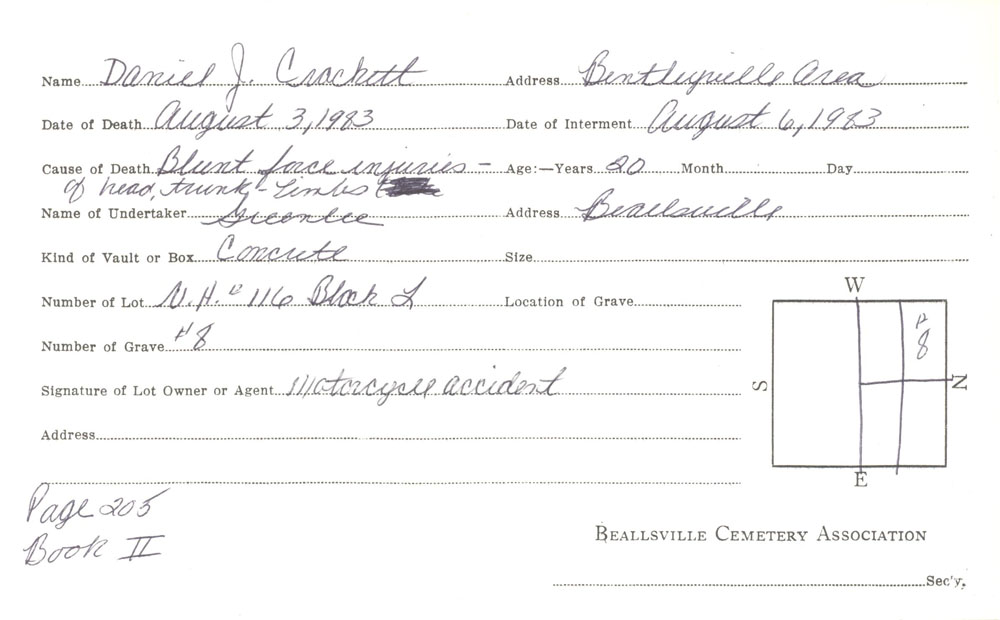 Name Daniel J. Crockett Address Bentleyville Area
Date of Death August 3, 1983 Date of Interment August 6, 1983
Cause of Death Blunt force injuries - Age:—Years 20 Month Day
of head, trunk - Limbs
Name of Undertaker Greenlee Address Beallsville
Kind of Vault or Box Concrete Size
Number of Lot N.H. " 116 Block L Location of Grave
Number of Grave #8
Signature of Lot Owner or Agent Motorcycle accident
Address
W
#
8
S
N
E
Page 205
Book II
BEALLSVILLE CEMETERY ASSOCIATION
Sec'y.